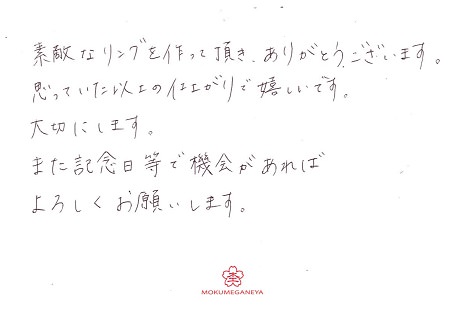 素敵なリングを作って頂き、ありがとうございます。
思っていた以上の仕上がりで嬉しいです。
大切にします。
また記念日等で機会があれば
よろしくお願いします。
MOKUMEGANEYA